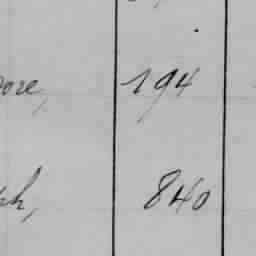 ore, 194
ph, 840